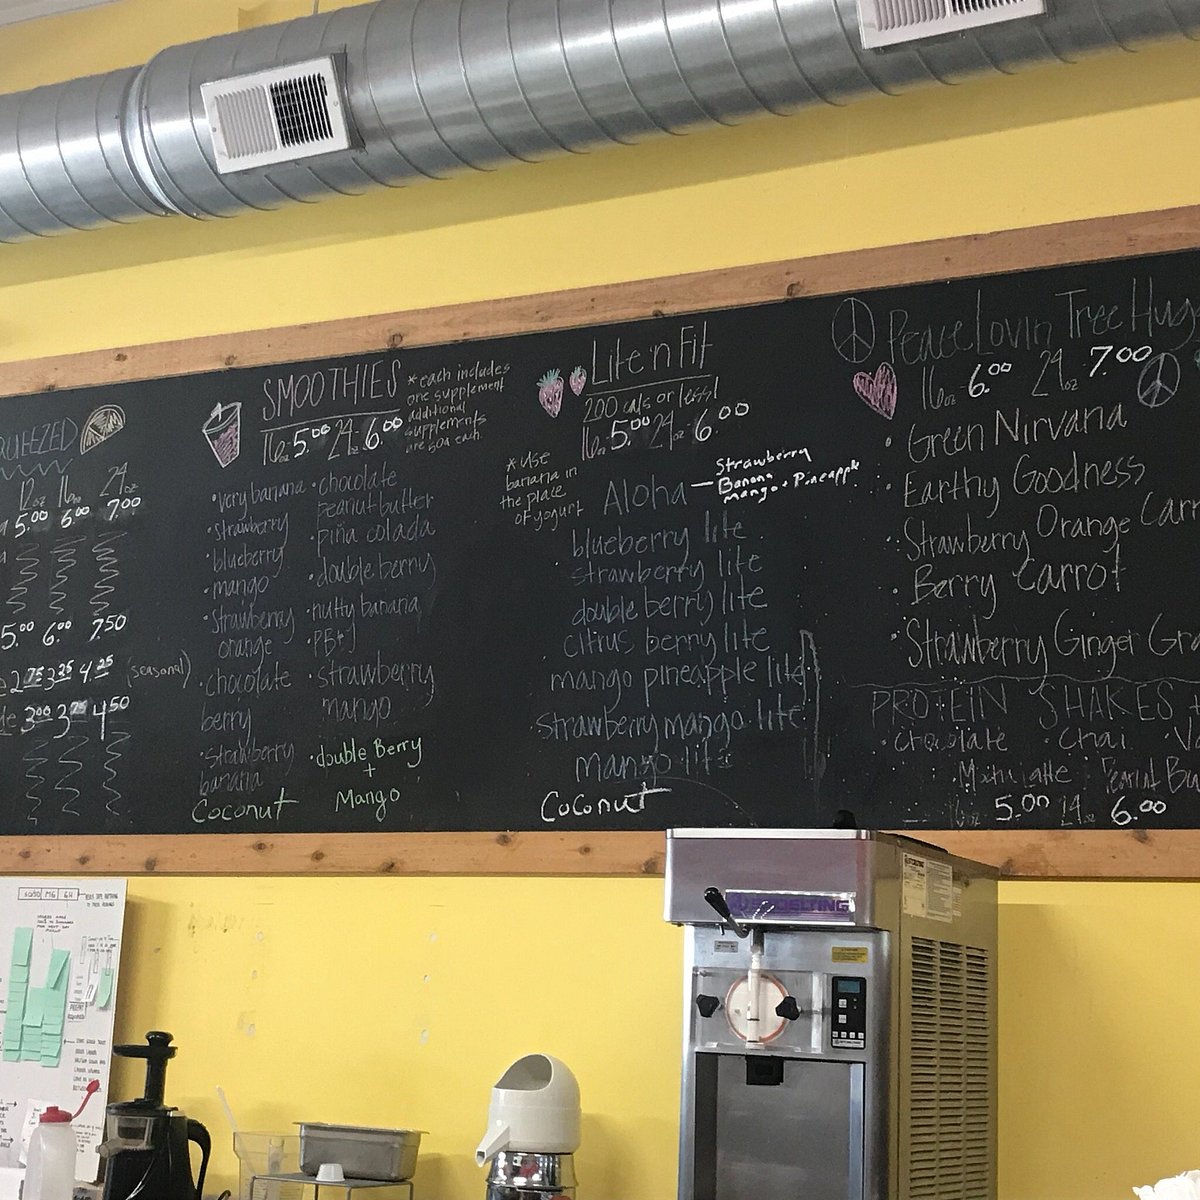 QUEEZED
12oz 16oz 24oz
5.00 6.00 7.00
5.00 6.00 7.50
2.75 3.25 4.25 (seasonal)
3.00 3.75 4.50
SMOOTHIES
16oz 5.00 24oz 6.00
*each includes
one supplement
additional
supplements
are 50¢ each.
• very banana
• strawberry
• blueberry
• mango
• strawberry
orange
• chocolate
berry
• strawberry
banana
Coconut
• chocolate
peanut butter
• piña colada
• double berry
• nutty banana
• PB+J
• strawberry
mango
• double Berry
+
Mango
Lite 'n Fit
200 cals or less!
16oz 5.00 24oz 6.00
*use
banana in
the place
of yogurt
Aloha — Strawberry
Banana
mango • Pineapple
blueberry lite
strawberry lite
double berry lite
citrus berry lite
mango pineapple lite
strawberry mango lite
mango lite
Coconut
Peace Lovin Tree Hug
16oz 6.00 24oz 7.00
• Green Nirvana
• Earthy Goodness
• Strawberry Orange Carr
• Berry Carrot
• Strawberry Ginger Gra
PROTEIN SHAKES
• chocolate • Chai • Va
• Mocha Latte • Peanut Bu
16oz 5.00 24oz 6.00
STOELTING